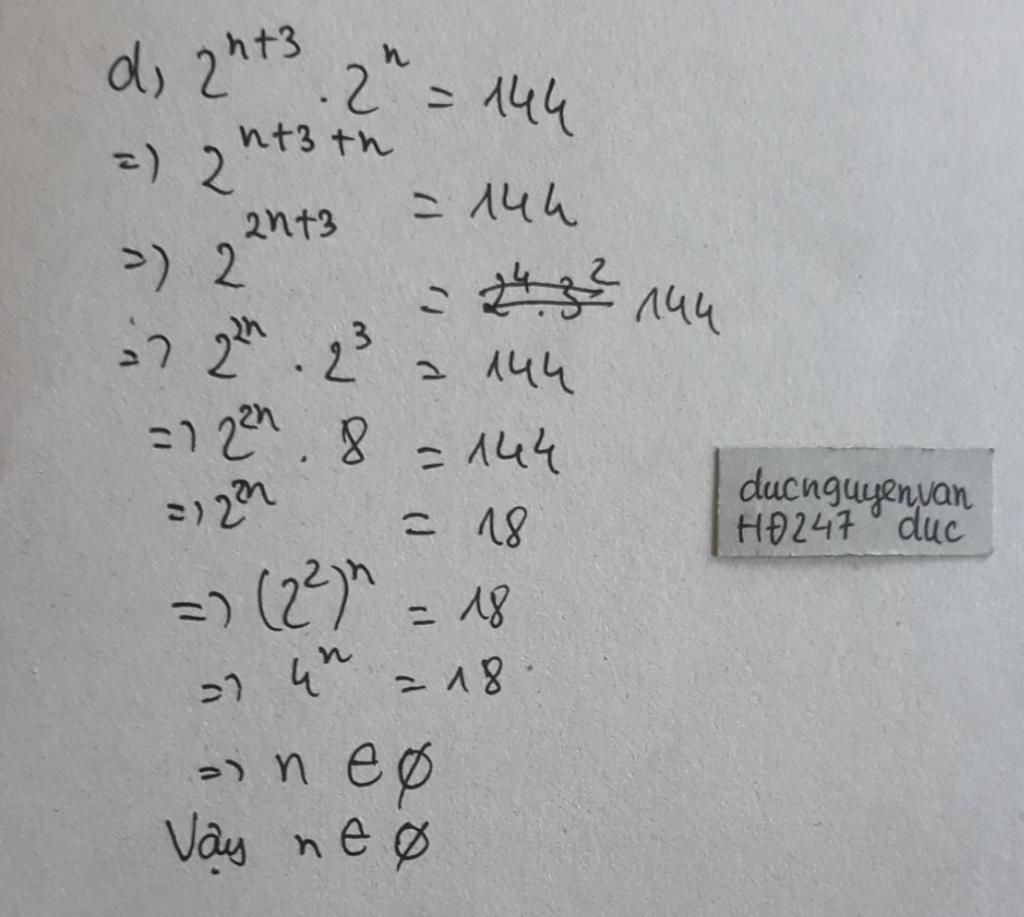 d, 2^{n+3} . 2^n = 144
=> 2^{n+3+n} = 144
=> 2^{2n+3} = 2^4.3^2 144
=> 2^{2n} . 2^3 = 144
=> 2^{2n} . 8 = 144
=> 2^{2n} = 18
=> (2^2)^n = 18
=> 4^n = 18
=> n ∈ ∅
Vậy n ∈ ∅
ducnguyenvan
HĐ247 duc